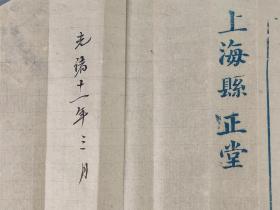 上海縣正堂
光緒十一年三月